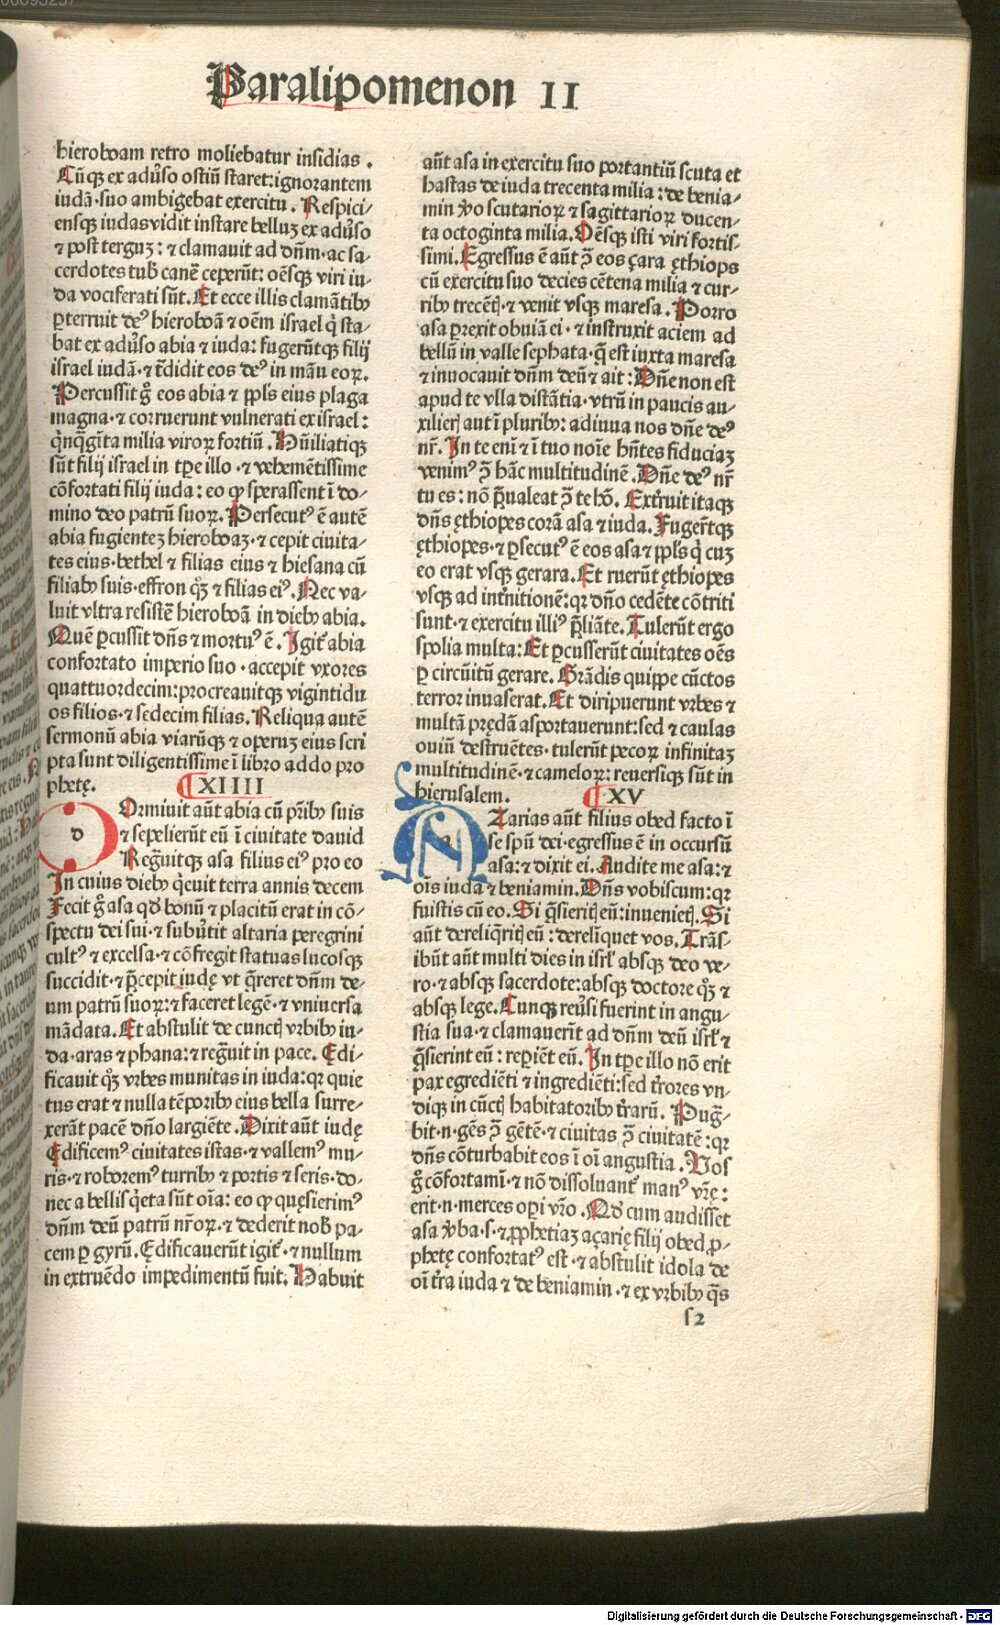 Paralipomenon II
hieroboam retro moliebatur insidias.
Cūqꝫ ex adūso ostiū staret: ignorantem
iudā· suo ambigebat exercitu. Respici/
ensqꝫ iudas vidit instare belluꝫ ex adūso
⁊ post terguꝫ: ⁊ clamauit ad dn̄m· ac sa/
cerdotes tub̄ canē ceperūt: oēsqꝫ viri iu/
da vociferati sūt. Et ecce illis clamātibꝰ
ꝑterruit deꝰ hieroboā ⁊ oēm israel q̇ sta/
bat ex adūso abia ⁊ iuda: fugerūtqꝫ filij
israel iudā· ⁊ t̄didit eos deꝰ in māu eoꝝ.
Percussit g̊ eos abia ⁊ ppl̄s eius plaga
magna· ⁊ corruerunt vulnerati ex israel:
q̇nqḡita milia viroꝝ fortiū. Hūiliatiqꝫ
sūt filij israel in tꝑe illo· ⁊ vehemētissime
cōfortati filij iuda: eo ꝙ sperassent ī do/
mino deo patrū suoꝝ. Persecutꝰ ē autē
abia fugienteꝫ hieroboaꝫ· ⁊ cepit ciuita/
tes eius· bethel ⁊ filias eius ⁊ hiesana cū
filiabꝰ suis· effron qͦꝫ ⁊ filias eiꝰ. Nec va/
luit vltra resistē hieroboā in diebꝰ abia.
Quē ꝑcussit dn̄s ⁊ mortuꝰ ē. Igit᷑ abia
confortato imperio suo· accepit vxores
quattuordecim: procreauitqꝫ vigintidu
os filios· ⁊ sedecim filias. Reliqua autē
sermonū abia viarūqꝫ ⁊ operuꝫ eius scri
pta sunt diligentissime ī libro addo pro
phetę.
XIIII
d
Ormiuit aūt abia cū pr̄ibꝰ suis
⁊ sepelierūt eū ī ciuitate dauid
Regūitqꝫ asa filius eiꝰ pro eo
In cuius diebꝰ q̇euit terra annis decem
Fecit g̊ asa qd̄ bonū ⁊ placitū erat in cō/
spectu dei sui· ⁊ subūtit altaria peregrini
cultꝰ ⁊ excelsa· ⁊ cōfregit statuas lucosqꝫ
succidit· ⁊ p̄cepit iudę vt q̄reret dn̄m de/
um patrū suoꝝ: ⁊ faceret legē· ⁊ vniuersa
mādata. Et abstulit de cunctꝭ vrbibꝰ iu/
da· aras ⁊ phana: ⁊ regūit in pace. Edi/
ficauit qͦꝫ vrbes munitas in iuda: qꝛ quie
tus erat ⁊ nulla tēporibꝰ eius bella surre/
xerāt pacē dn̄o largiēte. Dixit aūt iudę
Edificemꝰ ciuitates istas· ⁊ vallemꝰ mu/
ris· ⁊ roboremꝰ turribꝰ ⁊ portis ⁊ seris· do/
nec a bellis q̇eta sūt oīa: eo ꝙ quęsierimꝰ
dn̄m deū patrū nr̄oꝝ· ⁊ dederit nob̄ pa/
cem ꝑ gyrū. Ędificauerūt igit᷑· ⁊ nullum
in extruēdo impedimentū fuit. Habuit
aūt asa in exercitu suo portantiū scuta et
hastas de iuda trecenta milia: de benia/
min v̊o scutarioꝝ ⁊ sagittarioꝝ ducen/
ta octoginta milia. Oēsqꝫ isti viri fortis/
simi. Egressus ē aūt ꝯ̄ eos çara ęthiops
cū exercitu suo decies cētena milia ⁊ cur/
ribꝰ trecētꝭ· ⁊ venit vsqꝫ maresa. Porro
asa ꝑrexit obuiā ei· ⁊ instruxit aciem ad
bellū in valle sephata· q̄ est iuxta maresa
⁊ inuocauit dn̄m deū ⁊ ait: Dn̄e non est
apud te vlla distātia· vtrū in paucis au/
xilierꝭ aut ī pluribꝰ: adiuua nos dn̄e deꝰ
nr̄. In te enī ⁊ ī tuo noīe hn̄tes fiduciaꝫ
venimꝰ ꝯ̄ hāc multitudinē. Dn̄e deꝰ nr̄
tu es: nō p̄ualeat ꝯ̄ te hō. Exťruit itaqꝫ
dn̄s ęthiopes corā asa ⁊ iuda. Fugeřtqꝫ
ęthiopes· ⁊ ꝑsecutꝰ ē eos asa ⁊ ppl̄s q̇ cuꝫ
eo erat vsqꝫ gerara. Et ruerūt ęthiopes
vsqꝫ ad inťnitionē: qꝛ dn̄o cedēte cōtriti
sunt· ⁊ exercitu illiꝰ p̄liāte. Tulerūt ergo
spolia multa: Et ꝑcusserūt ciuitates oēs
ꝑ circūitū gerare. Grādis quippe cūctos
terror inuaserat. Et diripuerunt vrbes ⁊
multā prędā asportauerunt: sed ⁊ caulas
ouiū destruētes· tulerūt pecoꝝ infinitaꝫ
multitudinē· ⁊ cameloꝝ: reuersiqꝫ sūt in
hierusalem.
XV
Zarias aūt filius obed facto ī
se spū dei· egressus ē in occursū
asa: ⁊ dixit ei. Audite me asa: ⁊
oīs iuda ⁊ beniamin. Dn̄s vobiscum: qꝛ
fuistis cū eo. Si q̄sieritꝭ eū: inuenietꝭ. Si
aūt dereliq̇ritꝭ eū: derelīquet vos. Trās/
ibūt aūt multi dies in isrl̄ absqꝫ deo ve/
ro· ⁊ absqꝫ sacerdote: absqꝫ doctore qͦꝫ ⁊
absqꝫ lege. Cunqꝫ reūsi fuerint in angu/
stia sua· ⁊ clamauerīt ad dn̄m deū isrl̄ ⁊
q̄sierint eū: reꝑiēt eū. In tꝑe illo nō erit
pax egrediēti ⁊ ingrediēti: sed ťrores vn/
diqꝫ in cūctꝭ habitatoribꝰ ťrarū. Puḡ/
bit· n· gēs ꝯ̄ gētē· ⁊ ciuitas ꝯ̄ ciuitatē: qꝛ
dn̄s cōturbabit eos ī oī angustia. Vos
g̊ cōfortamī· ⁊ nō dissoluant᷑ manꝰ vr̄ę:
erit· n· merces oꝑi vr̄o. Qd̄ cum audisset
asa v̊ba· s· ⁊ ꝓphetiaꝫ açarię filij obed ꝓ/
phetę confortatꝰ est· ⁊ abstulit idola de
oī ťra iuda ⁊ de beniamin· ⁊ ex vrbibꝰ q̄s
s2
Digitalisierung gefördert durch die Deutsche Forschungsgemeinschaft - DFG